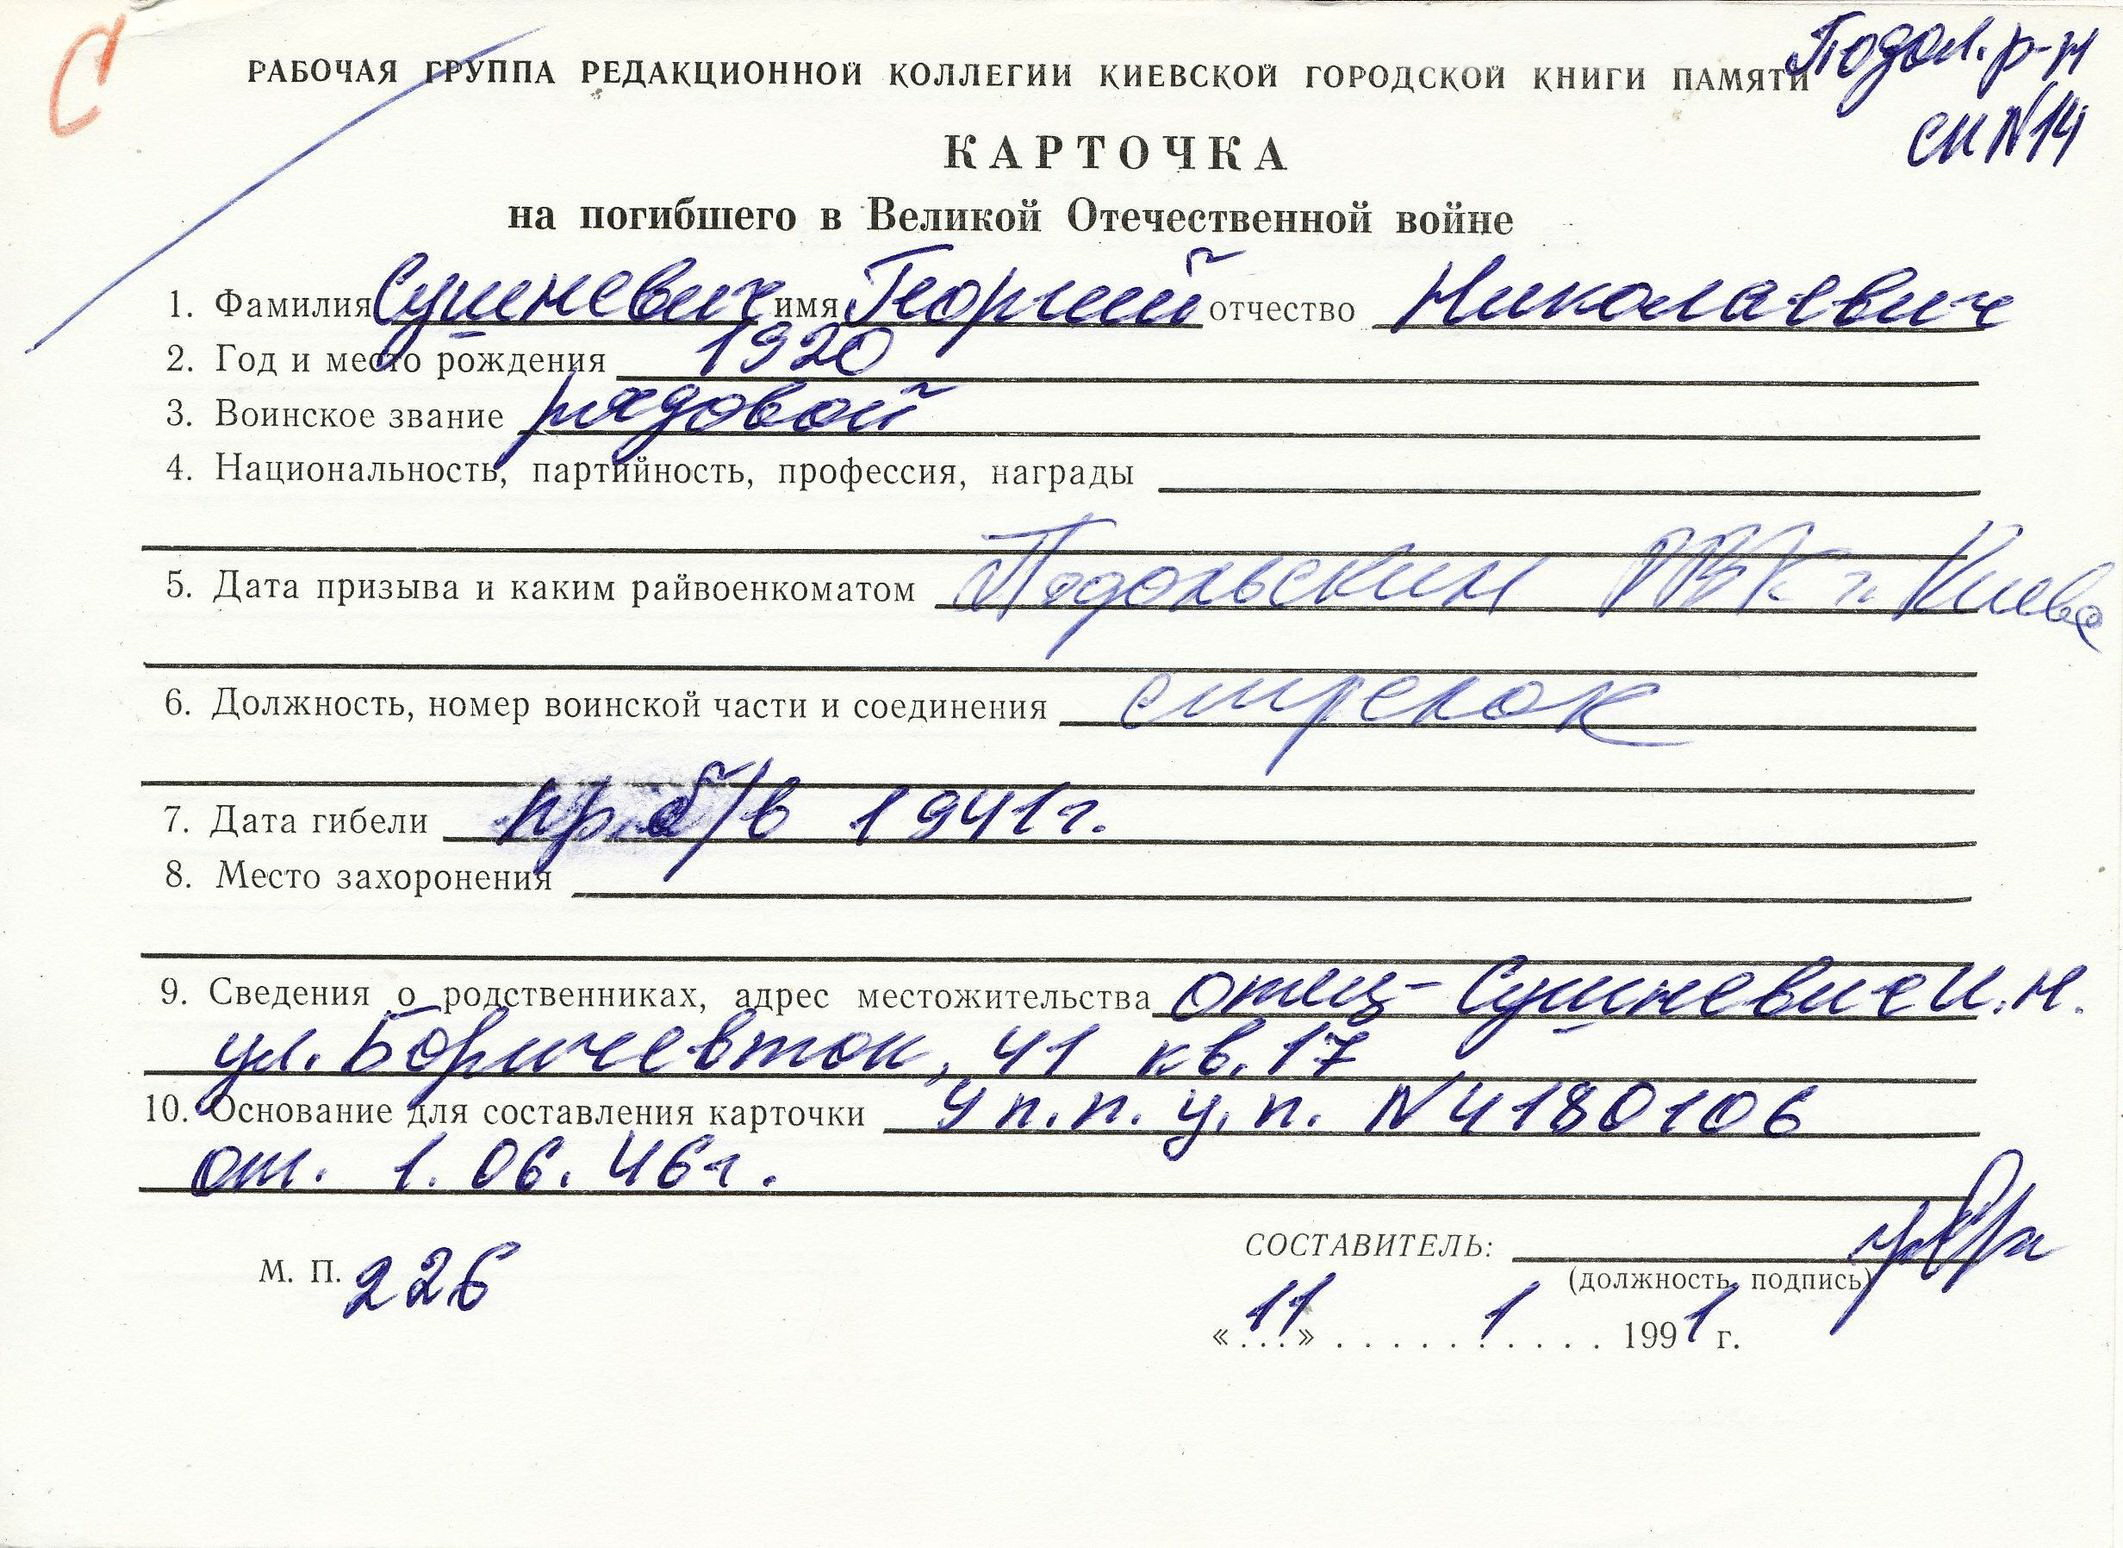 С
Подол. р-н
РАБОЧАЯ ГРУППА РЕДАКЦИОННОЙ КОЛЛЕГИИ КИЕВСКОЙ ГОРОДСКОЙ КНИГИ ПАМЯТИ
сп N14
КАРТОЧКА
на погибшего в Великой Отечественной войне
1. Фамилия Сушневич имя Георгий отчество Николаевич
2. Год и место рождения 1920
3. Воинское звание рядовой
4. Национальность, партийность, профессия, награды
5. Дата призыва и каким райвоенкоматом Подольским РВК г. Киева
6. Должность, номер воинской части и соединения стрелок
7. Дата гибели пр. б/в 1941г.
8. Место захоронения
9. Сведения о родственниках, адрес местожительства отец - Сушневич И.Н.
ул. Боричевток, 41 кв. 17
10. Основание для составления карточки У п.п. у.п. N4180106
от. 1. 06. 46г.
СОСТАВИТЕЛЬ:
М. П. 226
(должность, подпись)
«11» 1 1991 г.